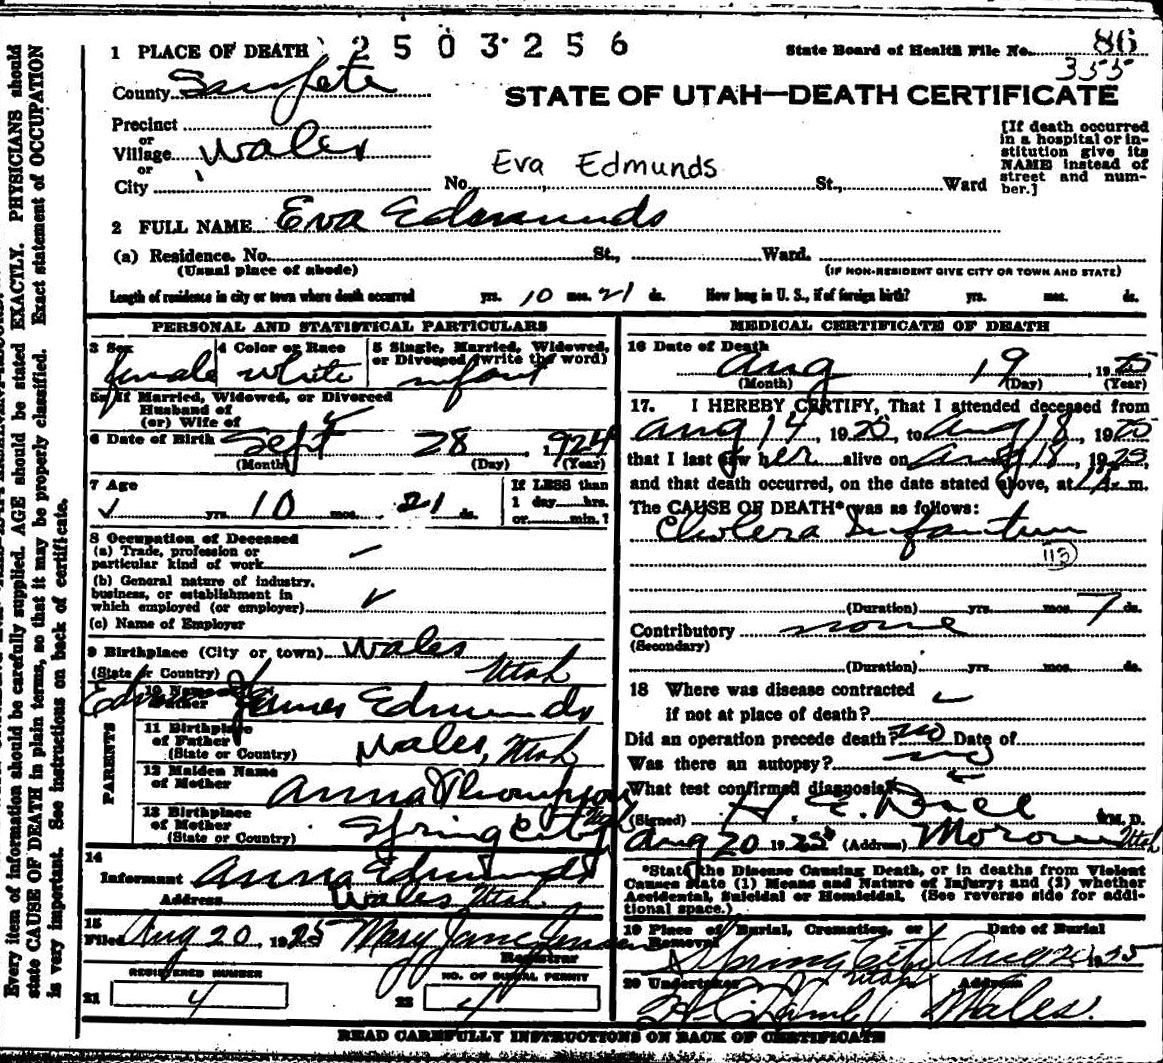 1 PLACE OF DEATH 2503256
State Board of Health File No. 86
355
County Sanpete
STATE OF UTAH—DEATH CERTIFICATE
Precinct
or
Village Wales
or
City No. St., Ward
Eva Edmunds
[If death occurred
in a hospital or in-
stitution give its
NAME instead of
street and num-
ber.]
2 FULL NAME Eva Edmunds
(a) Residence. No. St., Ward.
(Usual place of abode) (IF NON-RESIDENT GIVE CITY OR TOWN AND STATE)
Length of residence in city or town where death occurred yrs. 10 mos. 21 ds. How long in U. S., if of foreign birth? yrs. mos. ds.
PERSONAL AND STATISTICAL PARTICULARS
3 Sex 4 Color or Race 5 Single, Married, Widowed,
or Divorced (write the word)
female white infant
5a If Married, Widowed, or Divorced
Husband of
(or) Wife of
6 Date of Birth Sept 28, 1924
(Month) (Day) (Year)
7 Age If LESS than
1 day hrs.
or min.?
yrs. 10 mos. 21
8 Occupation of Deceased
(a) Trade, profession or
particular kind of work
(b) General nature of industry,
business, or establishment in
which employed (or employer)
(c) Name of Employer
9 Birthplace (City or town) Wales
(State or Country) Utah
PARENTS
10 Name of
Father James Edmunds
11 Birthplace
of Father Wales, Utah
(State or Country)
12 Maiden Name
of Mother Anna Thompson
13 Birthplace
of Mother Spring City Utah
(State or Country)
14
Informant Anna Edmunds
Address Wales Utah
15
Filed Aug 20 1925 Mary Jane Jensen
Registrar
REGISTERED NUMBER NO. OF BURIAL PERMIT
21 4 22 4
MEDICAL CERTIFICATE OF DEATH
16 Date of Death
Aug 19 1925
(Month) (Day) (Year)
17. I HEREBY CERTIFY, That I attended deceased from
Aug 14, 1925, to Aug 18, 1925
that I last saw her alive on Aug 18, 1925,
and that death occurred, on the date stated above, at m.
The CAUSE OF DEATH* was as follows:
Cholera Infantum
113
(Duration) yrs. mos. 7 ds.
Contributory none
(Secondary)
(Duration) yrs. mos. ds.
18 Where was disease contracted
if not at place of death?
Did an operation precede death? no Date of
Was there an autopsy? no
What test confirmed diagnosis?
(Signed) H. E. M. D.
Aug 20 1925 (Address) Moroni Utah
*State the Disease Causing Death, or in deaths from Violent
Causes state (1) Means and Nature of Injury; and (2) whether
Accidental, Suicidal or Homicidal. (See reverse side for addi-
tional space.)
19 Place of Burial, Cremation, or Date of Burial
Removal
Spring City Utah Aug 20 1925
20 Undertaker Address
Wales.
READ CAREFULLY INSTRUCTIONS ON BACK OF CERTIFICATE
Every item of information should be carefully supplied. AGE should be stated EXACTLY. PHYSICIANS should
state CAUSE OF DEATH in plain terms, so that it may be properly classified. Exact statement of OCCUPATION
is very important. See instructions on back of certificate.